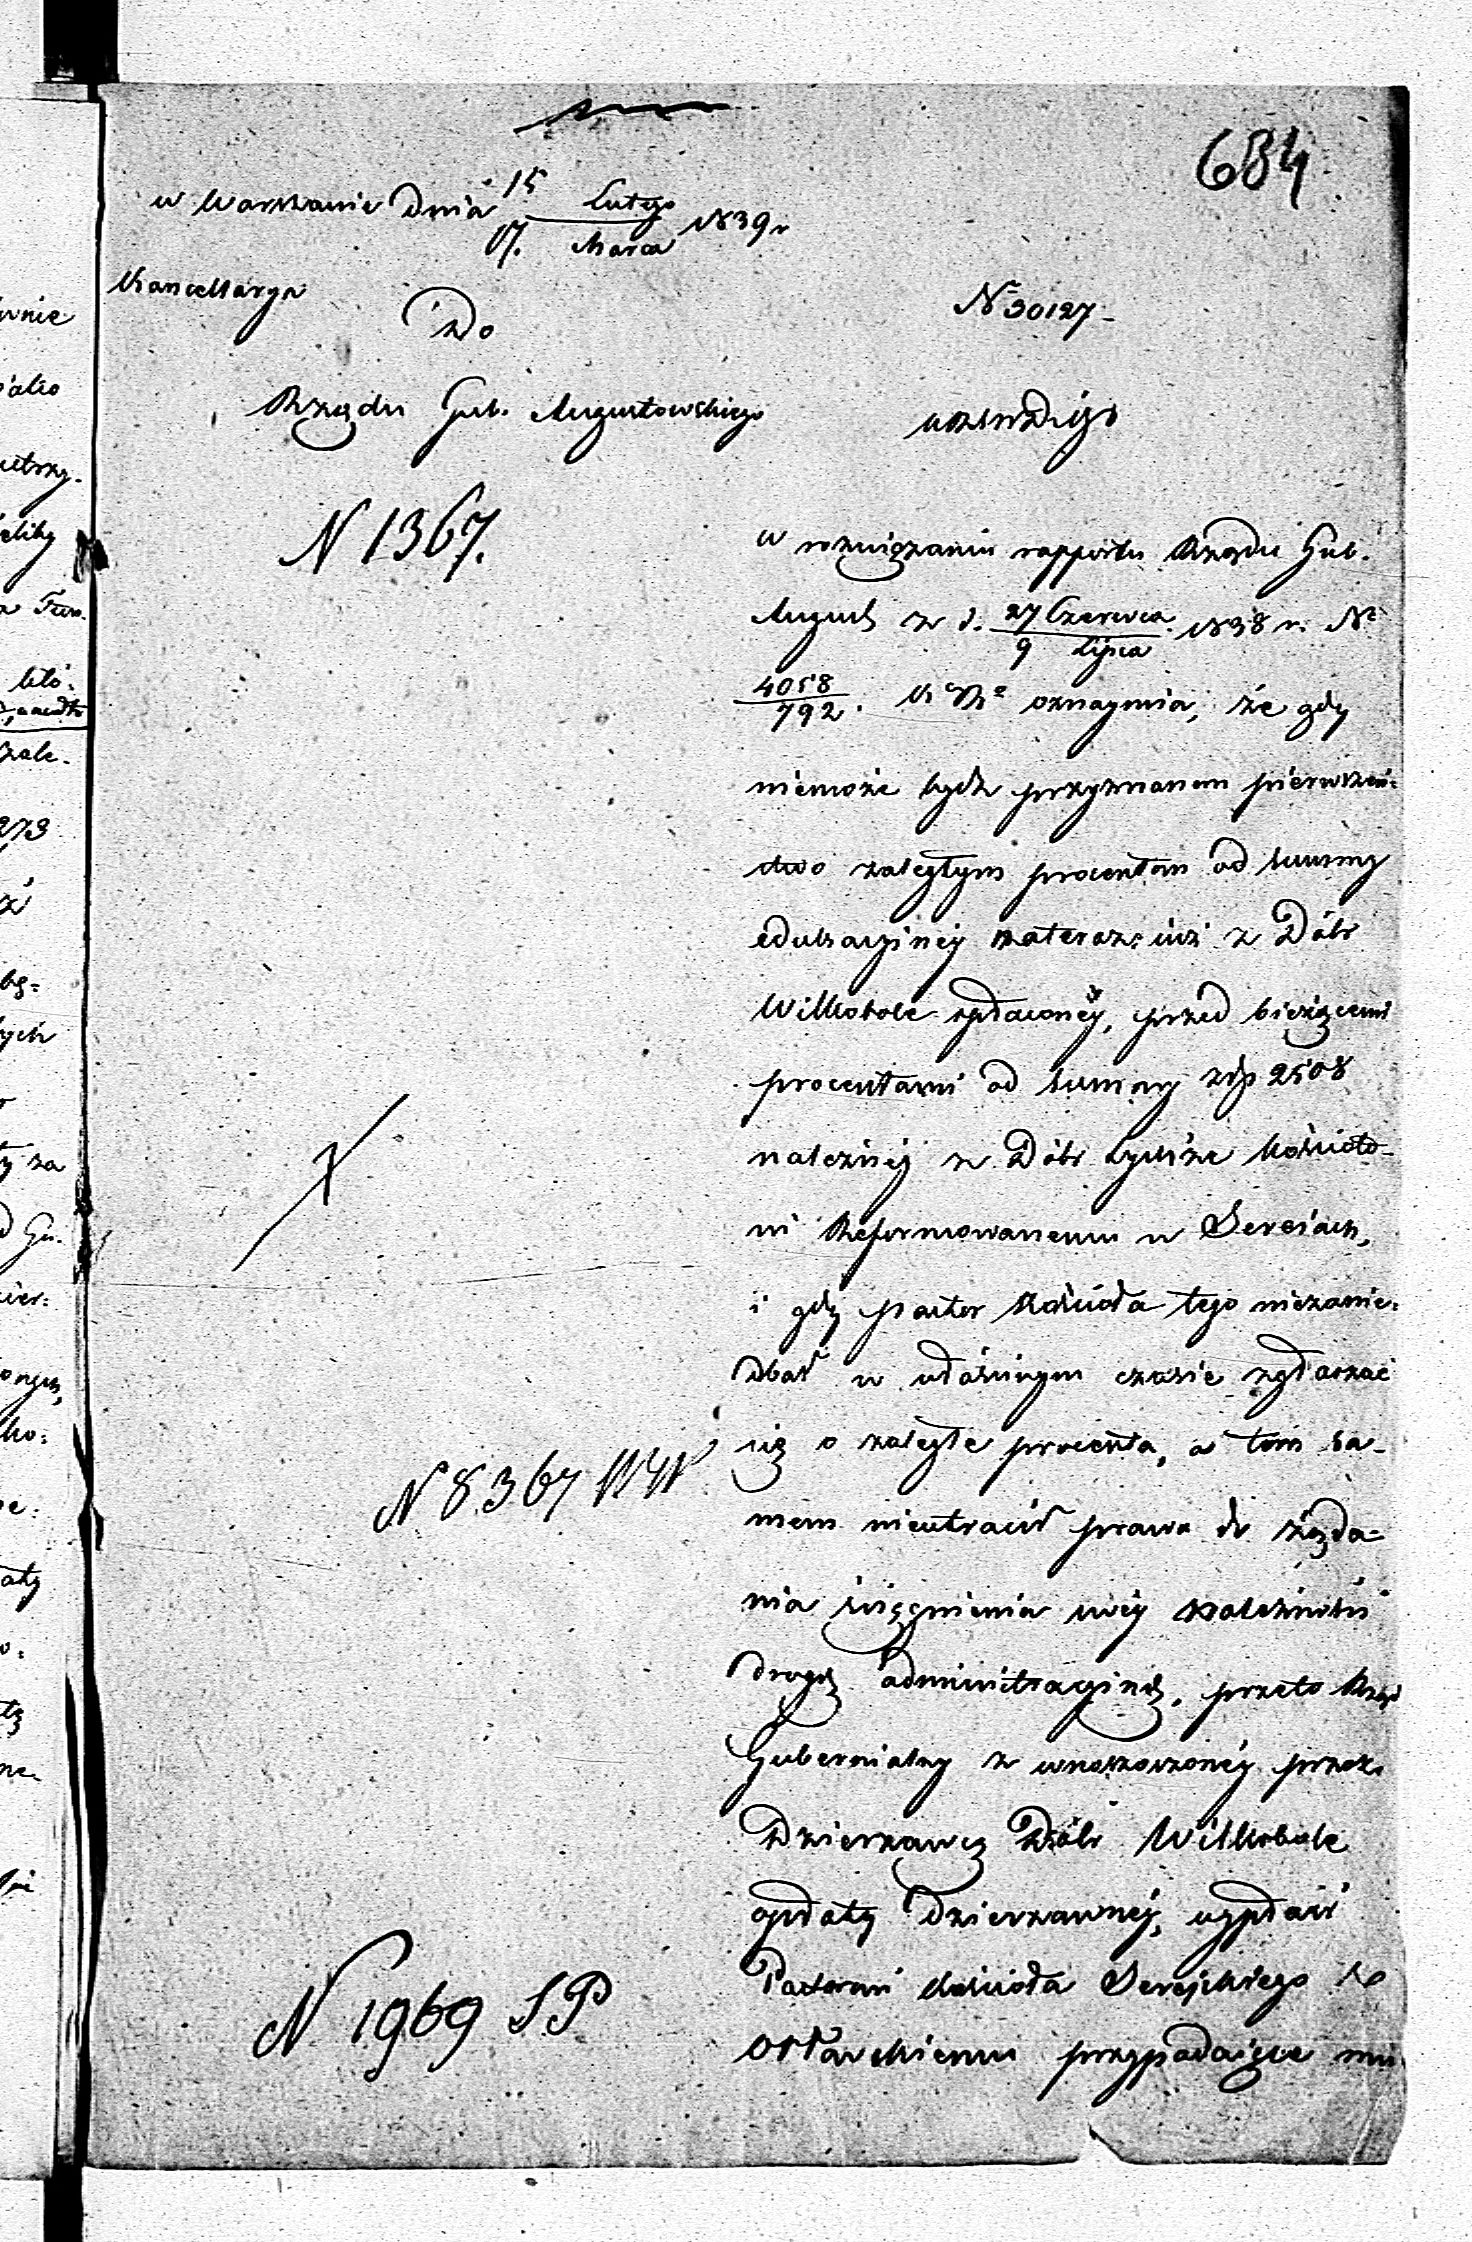 684
w Warszawie dnia 15 Lutego / 17. Marca 1839 r
Kancellarya
Do
N 30127
Rządu Gub. Augustowskiego
N 1367.
w rozwiązaniu rapportu Rządu Gub.
August z d. 27 Czerwca / 9 Lipca 1838 r. Nº
4058/792. oznaymia, że gdy
niemoże bydź przyznanem pierwszeń-
stwo zaległym procentom od summy
edukacyiney z Dóbr
Wilkobole spłaconéy, przed bieżącemi
procentami od summy złp 2508
należnéy z Dóbr Kościoło-
wi Reformowanemu w Sereiach,
i gdy pastor Kościoła tego niezanie-
dbał w właściwym czasie zgłaszać
się o zaległe procenta, a tem sa-
mem nieutracił prawa do żąda-
nia ściągnienia swéy należności
drogą administracyiną, przeto Rząd
Gubernialny z wnoszonéy przez
Dzierżawcę Dóbr Wilkobole
opłaty dzierżawnéy, wypłaci
Pastorowi Kościoła Sereyskiego
przypadaiące mu
N 8367
N 1969 SP
wnie
273
ych
ty za